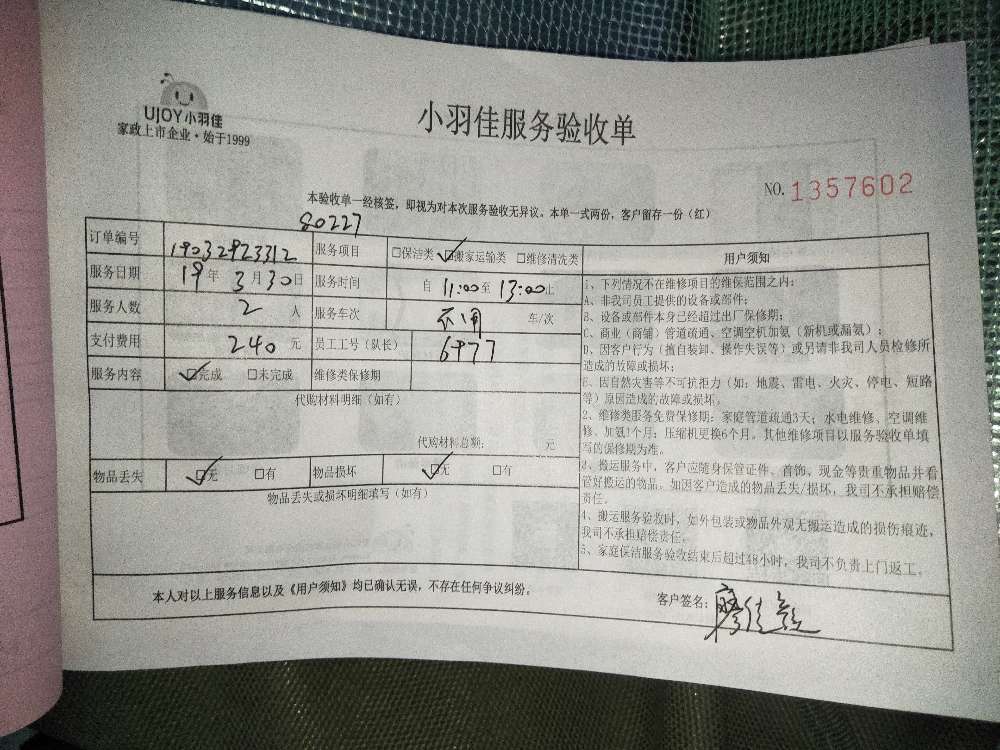 UJOY小羽佳
家政上市企业·始于1999
小羽佳服务验收单
NO. 1357602
本验收单一经核签，即视为对本次服务验收无异议。本单一式两份，客户留存一份（红）
80227
订单编号 19032923312 服务项目 □保洁类 ☑搬家运输类 □维修清洗类
服务日期 19年3月30日 服务时间 自 11:00至 13:00止
服务人数 2 人 服务车次 车/次
支付费用 240 元 员工工号（队长） 6977
服务内容 ☑完成 □未完成 维修类保修期
代购材料明细（如有）
代购材料总额： 元
物品丢失 ☑无 □有 物品损坏 ☑无 □有
物品丢失或损坏明细填写（如有）
用户须知
1、下列情况不在维修项目的维保范围之内：
A、非我司员工提供的设备或部件；
B、设备或部件本身已经超过出厂保修期；
C、商业（商铺）管道疏通、空调空机加氨（新机或漏氨）；
D、因客户行为（擅自装卸、操作失误等）或另请非我司人员检修所
造成的故障或损坏；
E、因自然灾害等不可抗拒力（如：地震、雷电、火灾、停电、短路
等）原因造成的故障或损坏。
2、维修类服务免费保修期：家庭管道疏通3天；水电维修、空调维
修、加氨1个月；压缩机更换6个月。其他维修项目以服务验收单填
写的保修期为准。
3、搬运服务中，客户应随身保管证件、首饰、现金等贵重物品并看
管好搬运的物品。如因客户造成的物品丢失/损坏，我司不承担赔偿
责任。
4、搬运服务验收时，如外包装或物品外观无搬运造成的损伤痕迹，
我司不承担赔偿责任。
5、家庭保洁服务验收结束后超过48小时，我司不负责上门返工。
本人对以上服务信息以及《用户须知》均已确认无误，不存在任何争议纠纷。
客户签名：廖佳